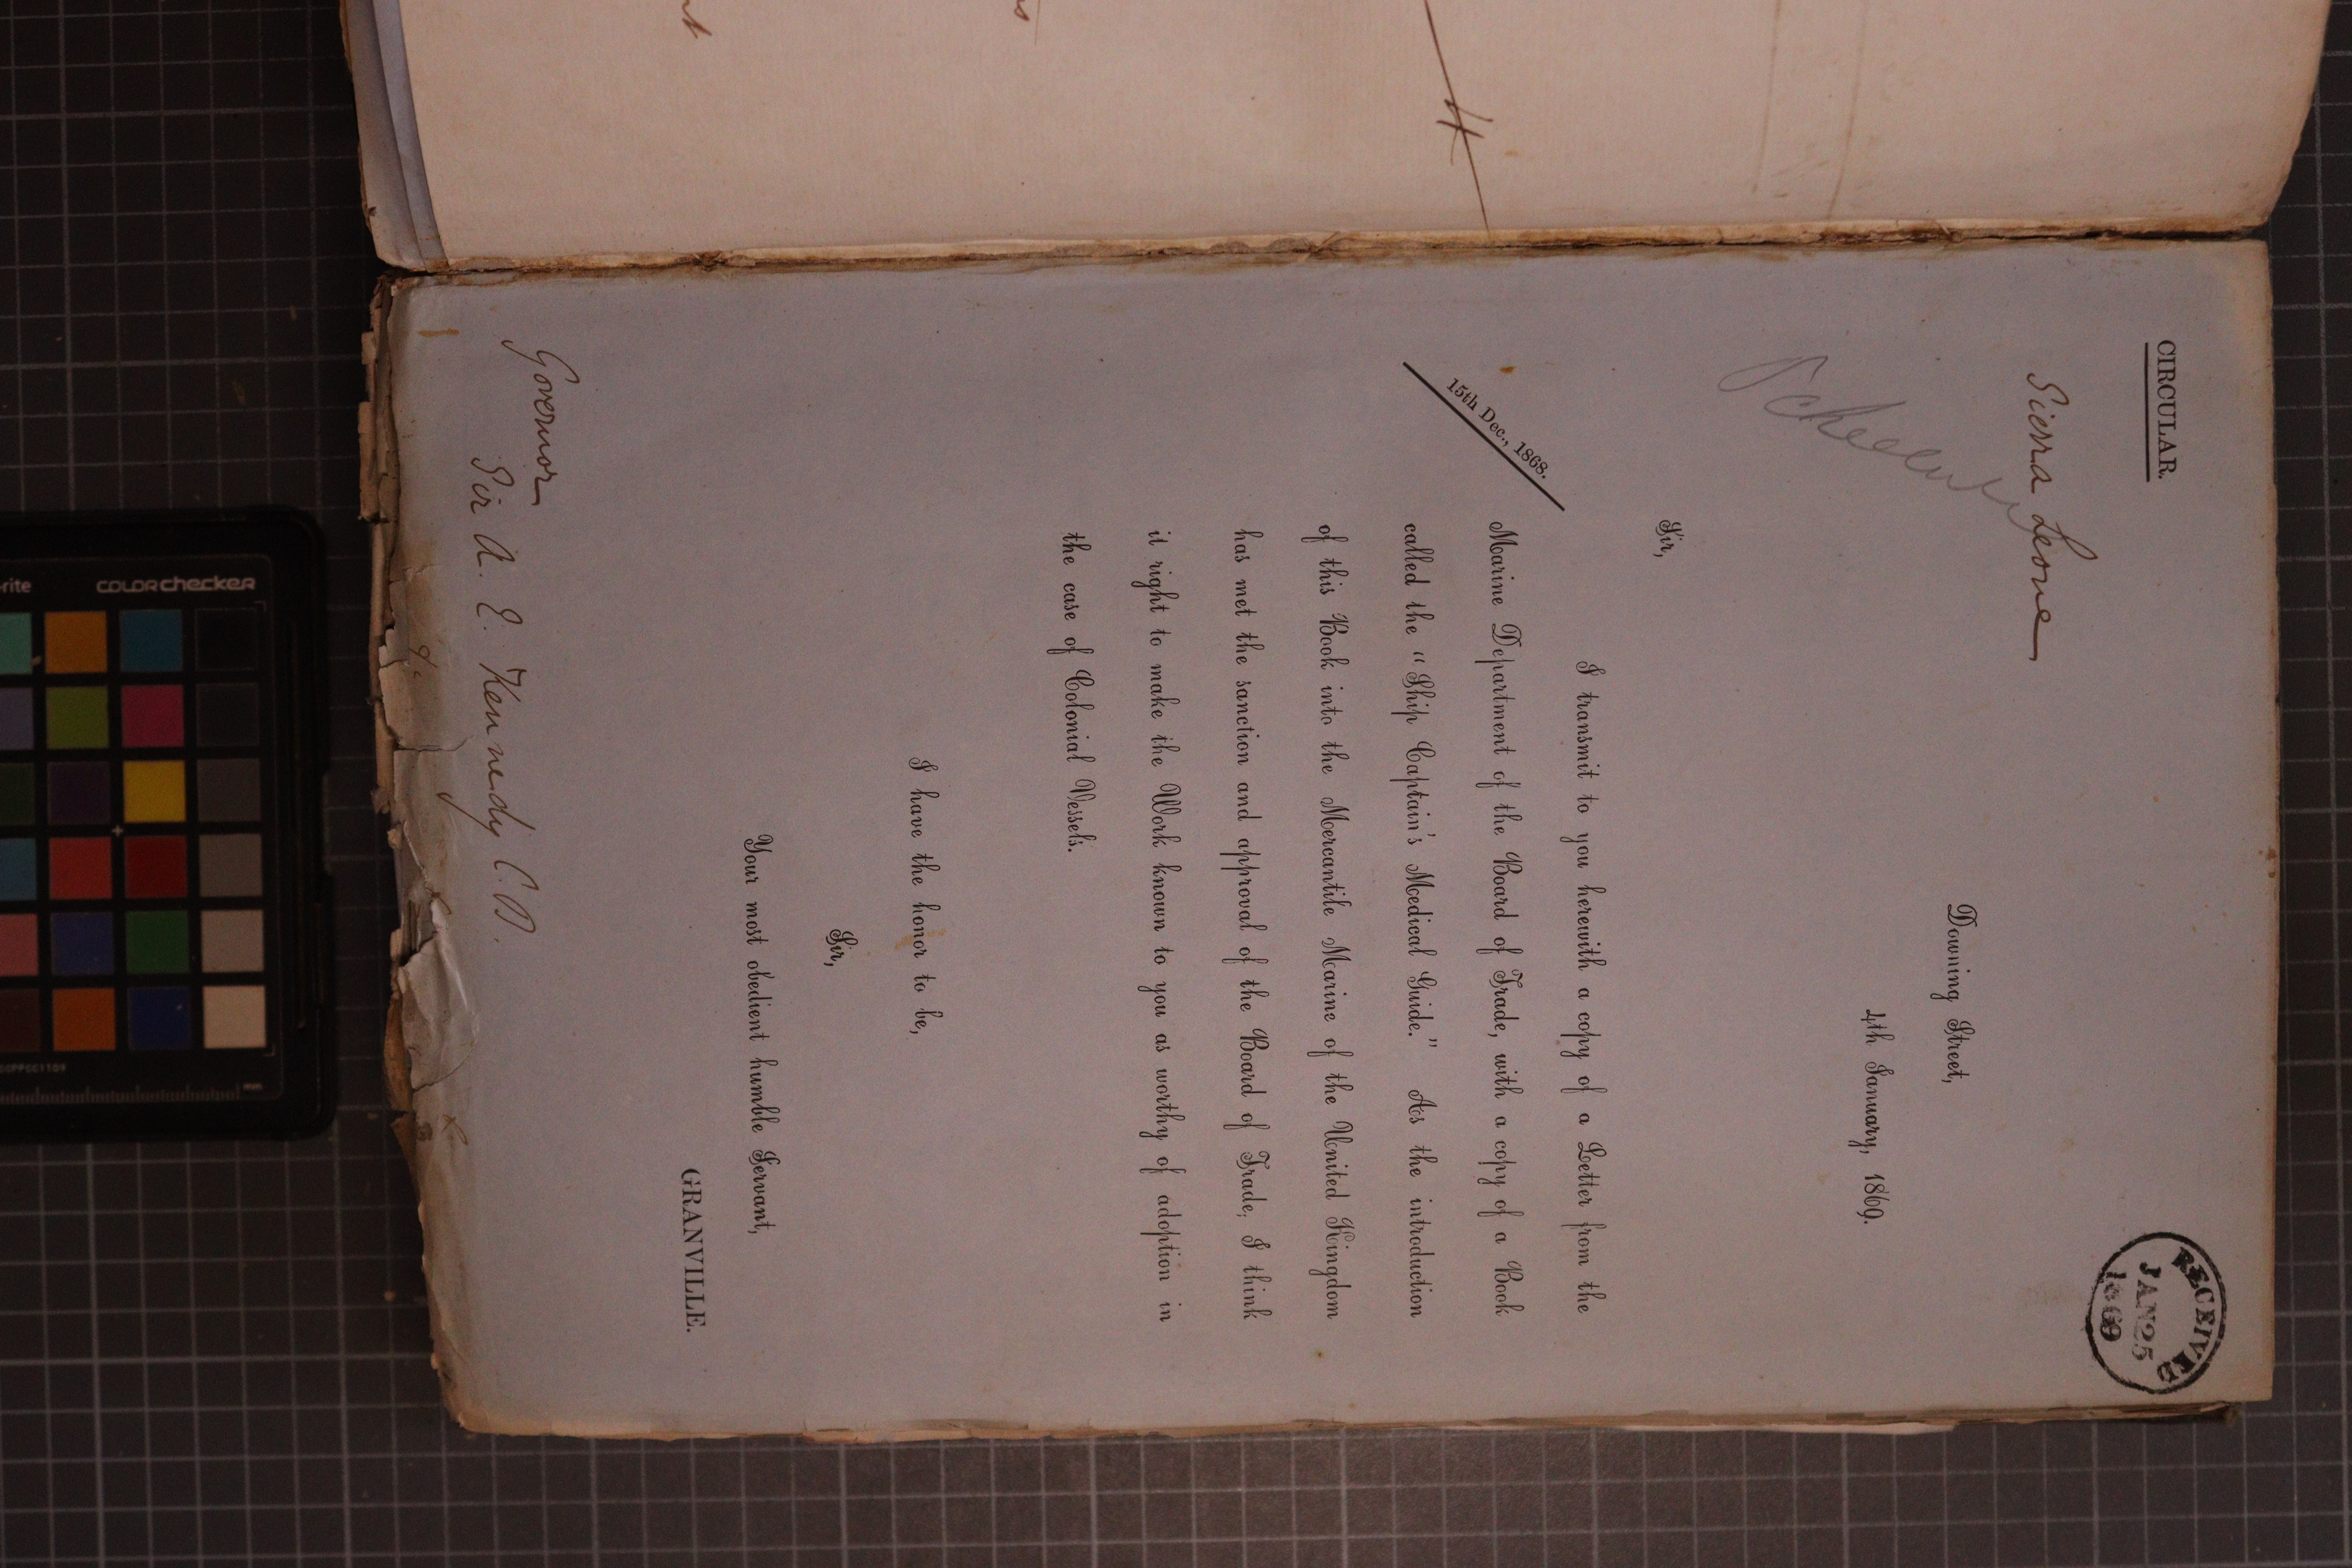 CIRCULAR.
RECEIVED
JAN 25
1869
Sierra Leone
Downing Street,
4th January, 1869.
Sir,
I transmit to you herewith a copy of a Letter from the
15th Dec., 1868.
Marine Department of the Board of Trade, with a copy of a Book
called the "Ship Captain's Medical Guide." As the introduction
of this Book into the Mercantile Marine of the United Kingdom
has met the sanction and approval of the Board of Trade, I think
it right to make the Work known to you as worthy of adoption in
the case of Colonial Vessels.
I have the honor to be,
Sir,
Your most obedient humble Servant,
GRANVILLE.
Governor
Sir A. E. Kennedy C.B.
colorchecker